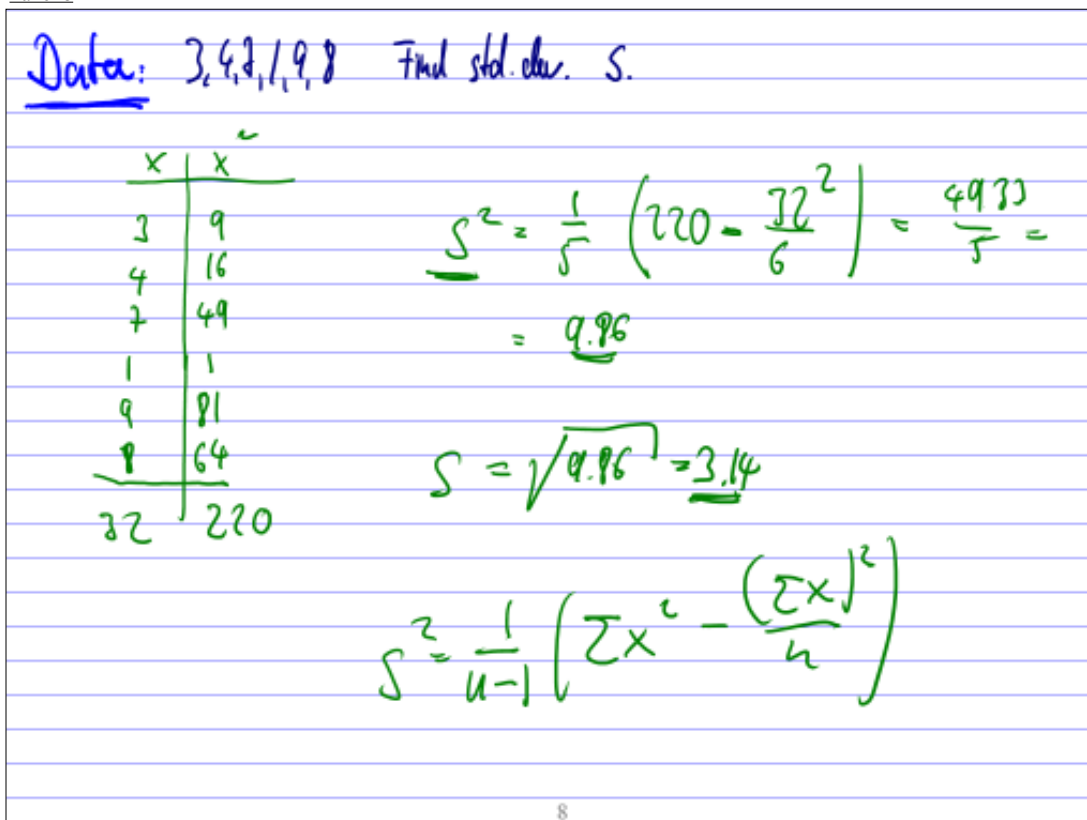 Data: 3,4,7,1,9,8 Find std. dev. S.
x | x²
3 | 9
4 | 16
7 | 49
1 | 1
9 | 81
8 | 64
32 | 220
S² = 1/5 (220 - 32²/6) = 4933/5 =
= 9.86
S = √9.86 = 3.14
S² = 1/(n-1) (Σx² - (Σx)²/n)
8